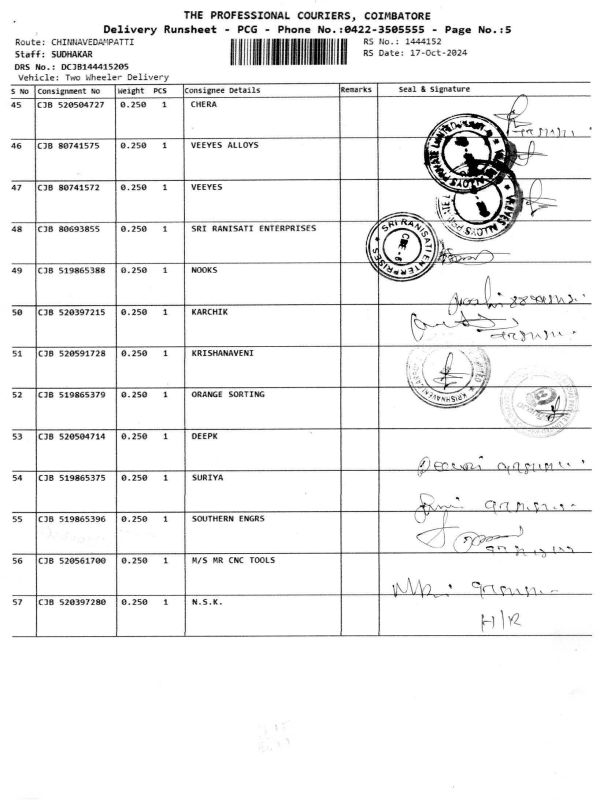 THE PROFESSIONAL COURIERS, COIMBATORE
Delivery Runsheet - PCG - Phone No.:0422-3505555 - Page No.:5
Route: CHINNAVEDAMPATTI RS No.: 1444152
Staff: SUDHAKAR RS Date: 17-Oct-2024
DRS No.: DCJB144415205
Vehicle: Two Wheeler Delivery
S No Consignment No Weight PCS Consignee Details Remarks Seal & Signature
45 CJB 520504727 0.250 1 CHERA
46 CJB 80741575 0.250 1 VEEYES ALLOYS
47 CJB 80741572 0.250 1 VEEYES
VEEYES ALLOYS
48 CJB 80693855 0.250 1 SRI RANISATI ENTERPRISES
SRI RANISATI ENTERPRISES
CBE-6
49 CJB 519865388 0.250 1 NOOKS
50 CJB 520397215 0.250 1 KARCHIK
51 CJB 520591728 0.250 1 KRISHNAVENI
KRISHNAVENI
52 CJB 519865379 0.250 1 ORANGE SORTING
53 CJB 520504714 0.250 1 DEEPK
54 CJB 519865375 0.250 1 SURIYA
55 CJB 519865396 0.250 1 SOUTHERN ENGRS
56 CJB 520561700 0.250 1 M/S MR CNC TOOLS
57 CJB 520397280 0.250 1 N.S.K.